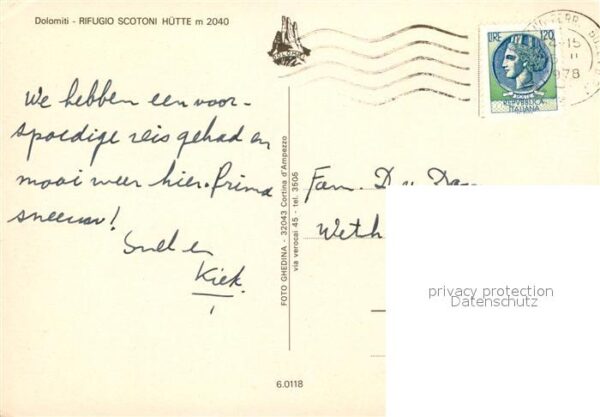 Dolomiti - RIFUGIO SCOTONI HÜTTE m 2040
We hebben een voor-
spoedige reis gehad en
mooi weer hier. Prima
sneeuw!
en
Kiek.
FOTO GHEDINA - 32043 Cortina d'Ampezzo
via verocai 45 - tel. 3506
6.0118
LIRE 120
REPUBBLICA
ITALIANA
-15
978
Fam. D. v.
Weth
privacy protection
Datenschutz